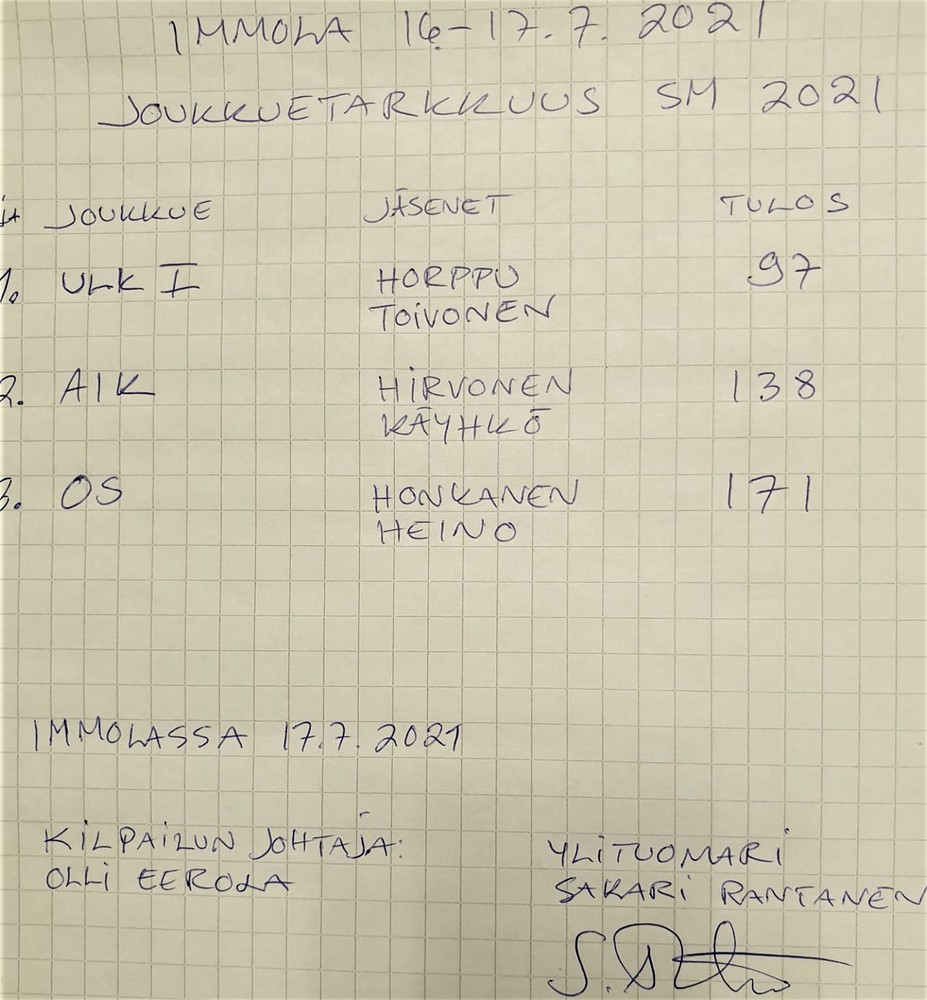 IMMOLA 16-17.7. 2021
JOUKKUETARKKUUS SM 2021
JOUKKUE JÄSENET TULOS
1. ULK I HORPPU 97
TOIVONEN
2. AIK HIRVONEN 138
KÄYHKÖ
3. OS HONKANEN 171
HEINO
IMMOLASSA 17.7. 2021
KILPAILUN JOHTAJA: YLITUOMARI
OLLI EEROLA SAKARI RANTANEN